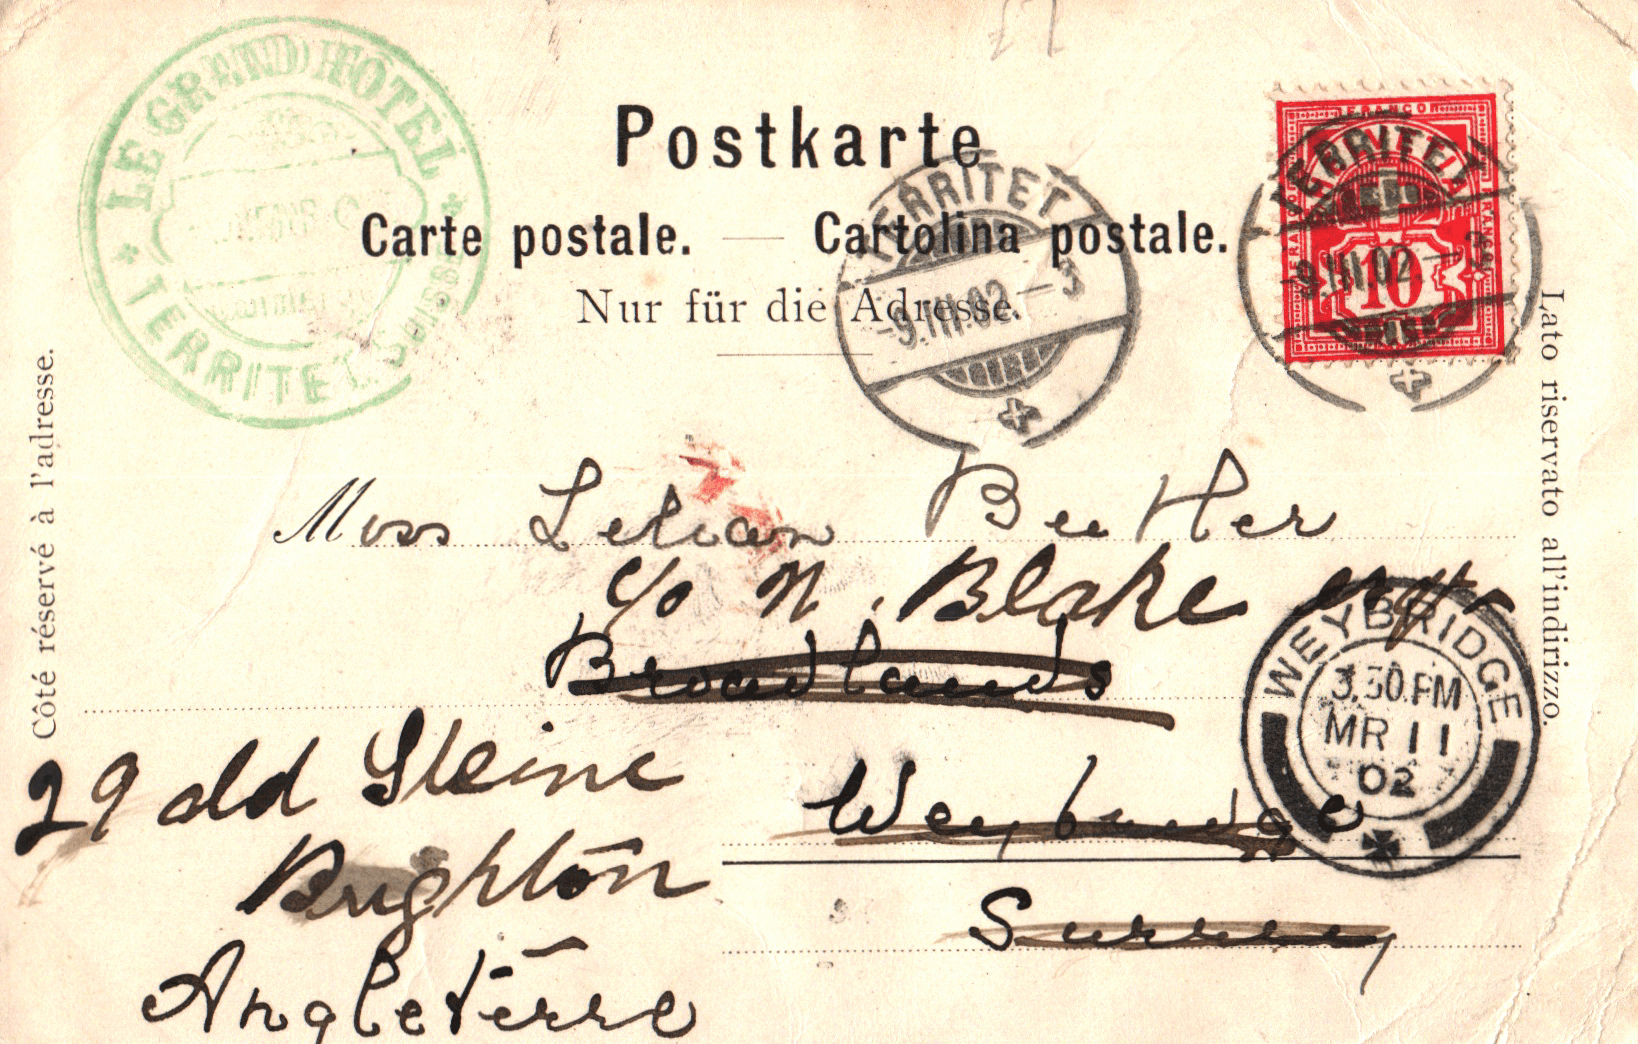 LE GRAND HÔTEL
* TERRITET Suisse *
Postkarte
Carte postale. — Cartolina postale.
Nur für die Adresse.
TERRITET
-9.III.02.-3
FRANCO
TERRITET
-9.III.02-3
10
Côté réservé à l'adresse.
Lato riservato all'indirizzo.
Miss Lilian Butler
c/o N. Blake
Broadlands
WEYBRIDGE
3.30.PM
MR 11
02
29 old Steine
Weybridge
Brighton
Surrey
Angleterre